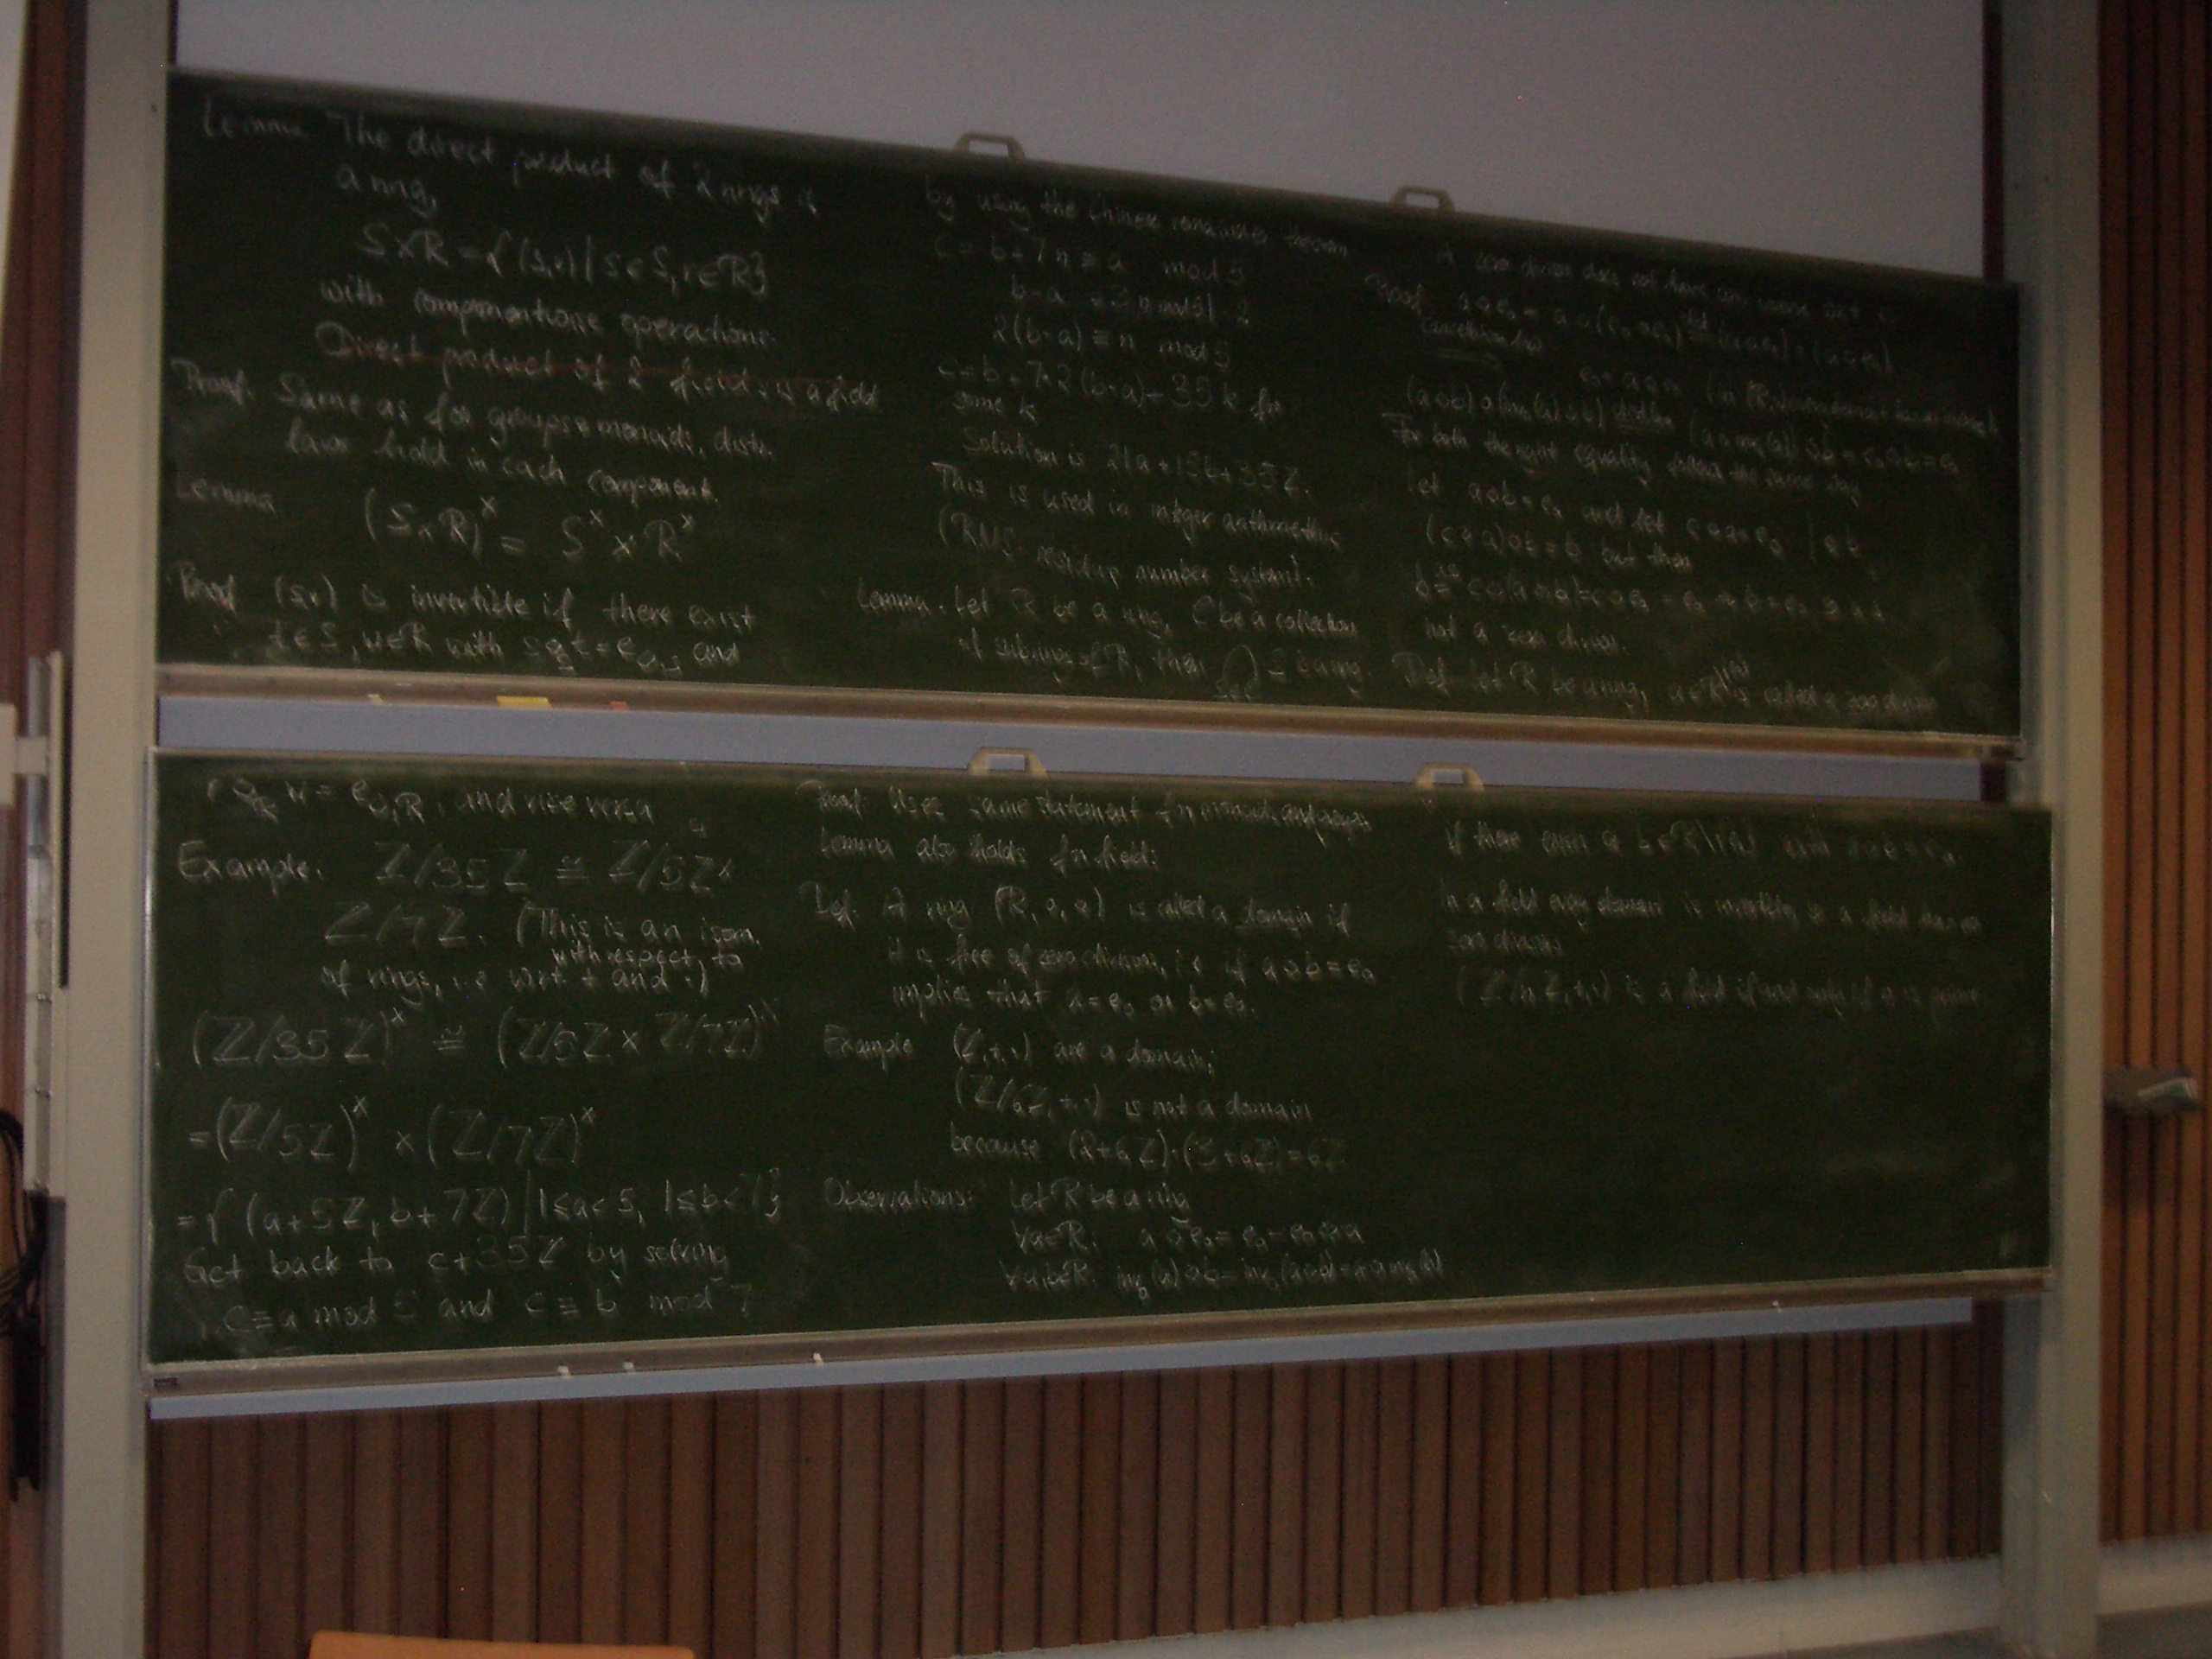 Lemma The direct product of 2 rings is
a ring,
S×R = {(s,r) | s∈S, r∈R}
with componentwise operations.
Direct product of 2 fields is a field
Proof. Same as for groups & monoids, distr.
laws hold in each component.
Lemma
(S×R)^× = S^× × R^×
Proof (s,r) is invertible if there exist
t∈S, u∈R with s ⊙_S t = e_{⊙,S} and
r ⊙_R u = e_{⊙,R}, and vice versa
Example. Z/35Z ≅ Z/5Z ×
Z/7Z. (This is an isom.
with respect to
of rings, i.e wrt + and ·)
(Z/35Z)^× ≅ (Z/5Z × Z/7Z)^×
= (Z/5Z)^× × (Z/7Z)^×
= {(a+5Z, b+7Z) | 1≤a<5, 1≤b<7}
Get back to c+35Z by solving
c≡a mod 5 and c≡b mod 7
by using the Chinese remainder theorem
c = b+7n ≡ a mod 5
b-a ≡ 3n mod 5 | ·2
2(b-a) ≡ n mod 5
c = b+7·2(b-a)+35k for
some k
Solution is 21a+15b+35Z.
This is used in integer arithmetic
(RNS: residue number system).
Lemma. Let R be a ring, C be a collection
of subrings of R, then ⋂ S is a ring.
S∈C
Proof: Uses same statement for monoids and groups
Lemma also holds for fields
Def. A ring (R, ∘, ⊙) is called a domain if
it is free of zero divisors, i.e if a⊙b = e_∘
implies that a = e_∘ or b = e_∘.
Example (Z,+,·) are a domain;
(Z/6Z,+,·) is not a domain
because (2+6Z)·(3+6Z) = 6Z
Observations: Let R be a ring
∀a∈R: a⊙e_∘ = e_∘ = e_∘⊙a
∀a,b∈R: inv_∘(a)⊙b = inv_∘(a⊙b) = a⊙inv_∘(b)
A zero divisor does not have an inverse
Proof: a⊙e_∘ = a⊙(e_∘∘e_∘) = (a⊙e_∘)∘(a⊙e_∘)
cancellation law
e_∘ = a⊙e_∘
(a⊙b)∘(inv_∘(a)⊙b) = (a∘inv_∘(a))⊙b = e_∘⊙b = e_∘
For both the right equality follows the same way
Let a⊙b = e_∘ and let c⊙a = e_⊙ | ⊙b
(c⊙a)⊙b = b but then
b = c⊙(a⊙b) = c⊙e_∘ = e_∘ ⇒ b = e_∘ ⇒ a is
not a zero divisor.
Def Let R be a ring, a∈R\{e_∘} is called a zero divisor
if there exists a b∈R\{e_∘} with a⊙b = e_∘.
In a field every element is invertible, so a field has no
zero divisors.
(Z/nZ,+,·) is a field if and only if n is prime